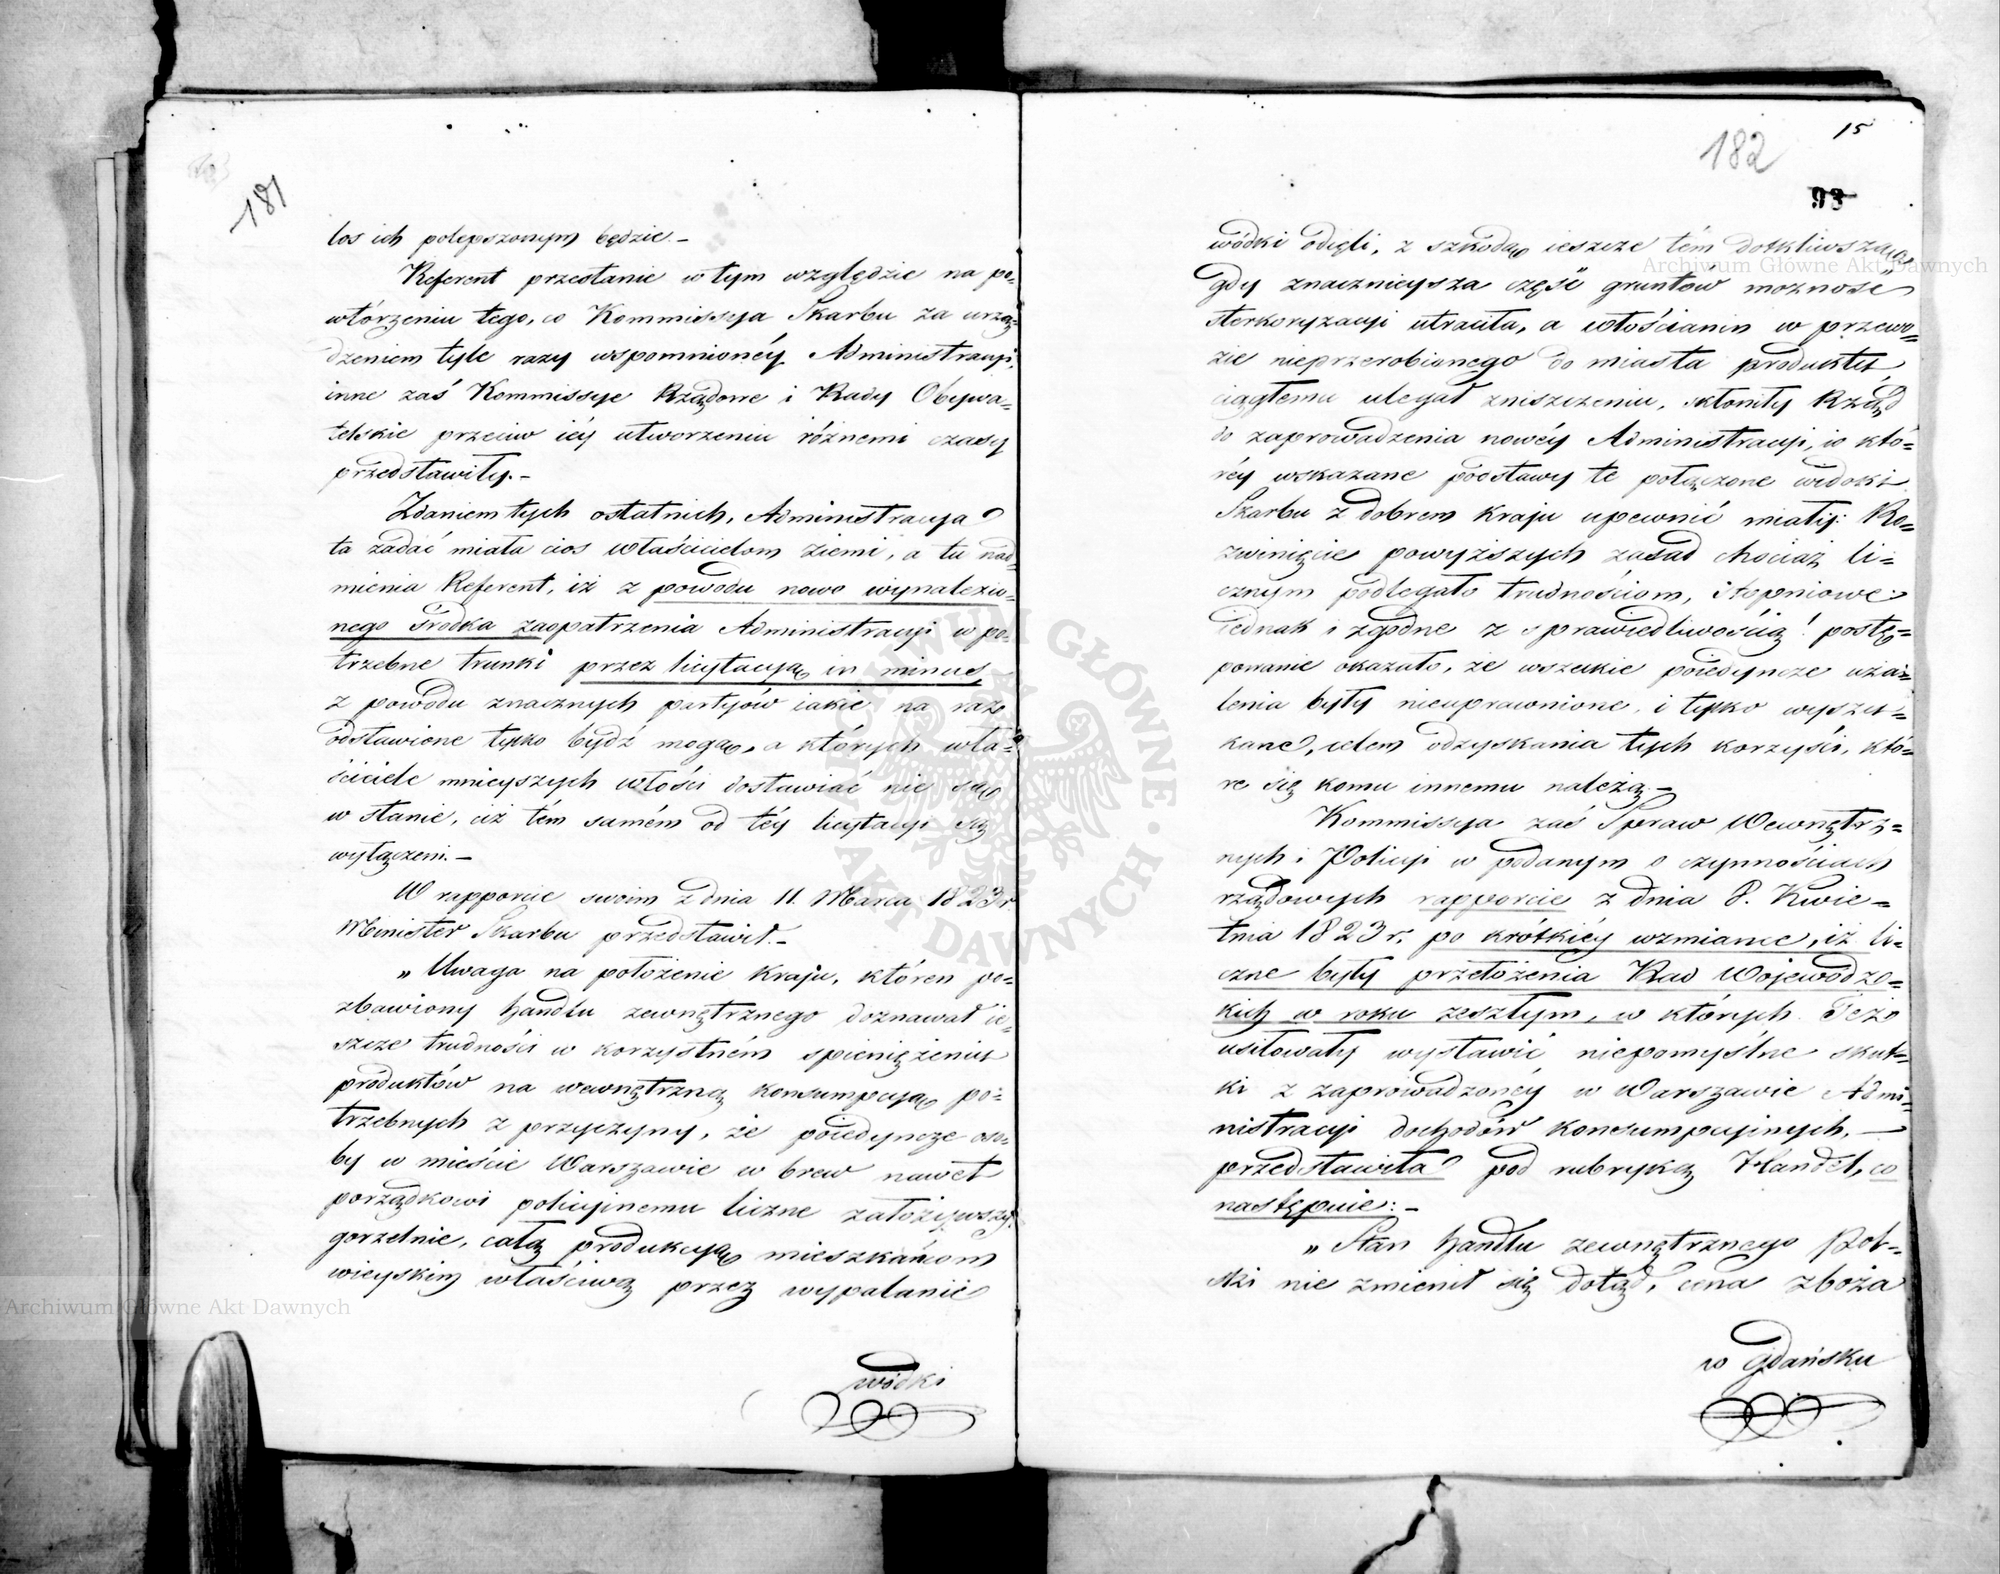 181
los ich polepszonym będzie. –
Referent przestanie w tym względzie na po-
wtórzeniu tego, co Kommissya Skarbu za urzą-
dzeniem tyle razy wspomnionéy Administracyi,
inne zaś Kommissye Rządowe i Rady Obywa-
telskie przeciw iéy utworzeniu różnemi czasy
przedstawiły. –
Zdaniem tych ostatnich, Administracya
ta zadać miała cios właścicielom ziemi, a tu nad-
mienia Referent, iż z powodu nowo wynalezio-
nego środka zaopatrzenia Administracyi w po-
trzebne trunki przez licytacyą in minus,
z powodu znacznych partyów iakie na raz
odstawione tylko bydź mogą, a których wła-
ściciele mnieyszych włości dostawiać nie są
w stanie, ciż tém samém od téy licytacyi są
wyłączeni. –
W rapporcie swoim z dnia 11. Marca 1823 r.
Minister Skarbu przedstawił. –
„ Uwaga na położenie kraju, któren po-
zbawiony handlu zewnętrznego doznawał ie-
szcze trudności w korzystném spieniężeniu
produktów na wewnętrzną konsumpcyą po-
trzebnych z przyczyny, że poiedyncze oso-
by w mieście Warszawie w brew nawet
porządkowi policyinemu liczne założywszy
gorzelnie, całą produkcyą mieszkańcom
wieyskim właściwą przez wypalanie
wódki
15
182
93
wódki odięli, z szkodą ieszcze tém dotkliwszą,
gdy znacznieysza część gruntów możność
sterkoryzacyi utraciła, a włościanin w przewo-
zie nieprzerobionego do miasta produktu
ciągłemu ulegał zniszczeniu, skłoniły Rząd
do zaprowadzenia nowéy Administracyi, w któ-
réy wskazane podstawy te połączone widoki
Skarbu z dobrem kraju upewnić miały: Ro-
zwinięcie powyższych zasad chociaż li-
cznym podlegało trudnościom, stopniowe
iednak i zgodne z sprawiedliwością postę-
powanie okazało, że wszelkie poiedyncze uża-
lenia były nieuprawnione, i tylko wyszu-
kane, celem odzyskania tych korzyści, któ-
re się komu innemu należą. –
Kommissya zaś Spraw Wewnętrz-
nych i Policyi w podanym o czynnościach
rządowych rapporcie z dnia 8. Kwie-
tnia 1823 r. po krótkiéy wzmiance, iż li-
czne były przełożenia Rad Wojewódz-
kich w roku zeszłym, w których Też
usiłowały wystawić niepomyślne skut-
ki z zaprowadzonéy w Warszawie Admi-
nistracyi dochodów konsumpcyinych, –
przedstawiła pod rubryką Handel, co
następuie: –
„ Stan handlu zewnętrznego Pol-
ski nie zmienił się dotąd, cena zboża
w Gdańsku
Archiwum Główne Akt Dawnych
Archiwum Główne Akt Dawnych
ARCHIWUM GŁÓWNE AKT DAWNYCH